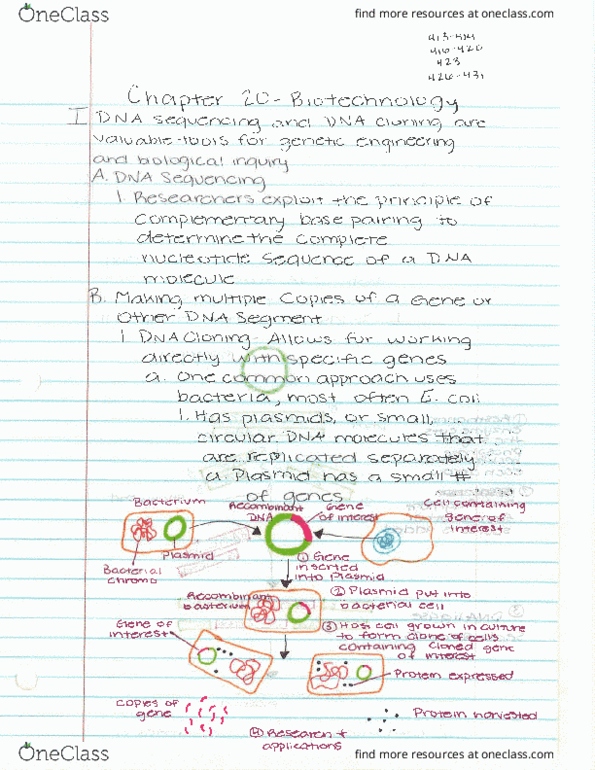 OneClass
find more resources at oneclass.com
416-420
423
426-431
Chapter 20- Biotechnology
I DNA sequencing and DNA cloning are
valuable tools for genetic engineering
and biological inquiry
A. DNA Sequencing
1. Researchers exploit the principle of
complementary base pairing to
determine the complete
nucleotide sequence of a DNA
molecule
B. Making multiple Copies of a Gene or
Other DNA Segment
1. DNA Cloning- Allows for working
directly with specific genes
a. One common approach uses
bacteria, most often E. coli
1. Has plasmids, or small,
circular DNA molecules that
are replicated separately
a. Plasmid has a small #
of genes
Bacterium
Recombinant
DNA
Gene
of interest
Cell containing
Gene of
interest
Plasmid
Bacterial
chromo
① Gene
inserted
into plasmid
Recombinant
bacterium
② Plasmid put into
bacterial cell
③ Host cell grown in culture
to form clone of cells
containing cloned gene
of interest
Gene of
interest
Protein expressed
Copies of
gene
Protein harvested
④ Research +
applications
OneClass
find more resources at oneclass.com